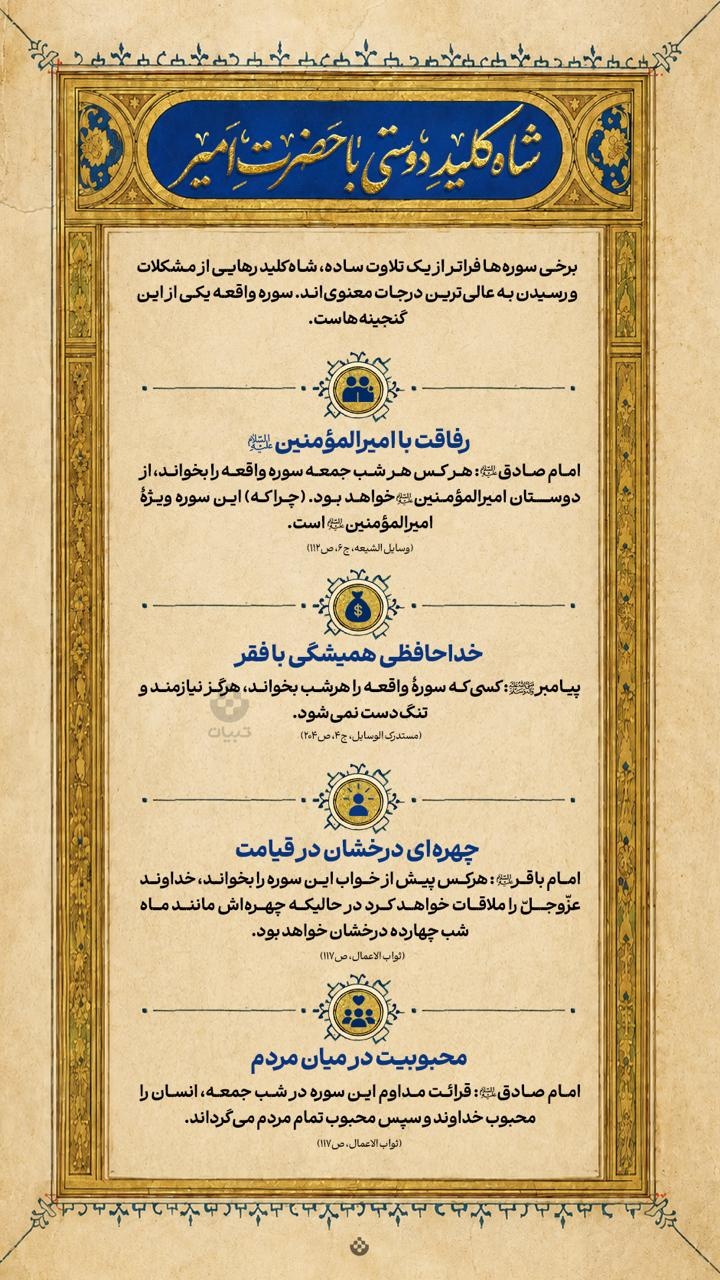 شاه کلید دوستی با حضرت امیر
برخی سوره‌ها فراتر از یک تلاوت ساده، شاه‌کلید رهایی از مشکلات
و رسیدن به عالی‌ترین درجات معنوی‌اند. سوره واقعه یکی از این
گنجینه‌هاست.
رفاقت با امیرالمؤمنین علیه‌السلام
امام صادق علیه‌السلام: هر کس هر شب جمعه سوره واقعه را بخواند، از
دوستان امیرالمؤمنین علیه‌السلام خواهد بود. (چرا که) این سوره ویژهٔ
امیرالمؤمنین علیه‌السلام است.
(وسایل الشیعه، ج۶، ص۱۱۲)
خداحافظی همیشگی با فقر
پیامبر ﷺ: کسی که سورهٔ واقعه را هرشب بخواند، هرگز نیازمند و
تنگ‌دست نمی‌شود.
(مستدرک الوسایل، ج۴، ص۲۰۴)
تبیان
چهره‌ای درخشان در قیامت
امام باقر علیه‌السلام: هرکس پیش از خواب این سوره را بخواند، خداوند
عزّوجلّ را ملاقات خواهد کرد در حالیکه چهره‌اش مانند ماه
شب چهارده درخشان خواهد بود.
(ثواب الاعمال، ص۱۱۷)
محبوبیت در میان مردم
امام صادق علیه‌السلام: قرائت مداوم این سوره در شب جمعه، انسان را
محبوب خداوند و سپس محبوب تمام مردم می‌گرداند.
(ثواب الاعمال، ص۱۱۷)